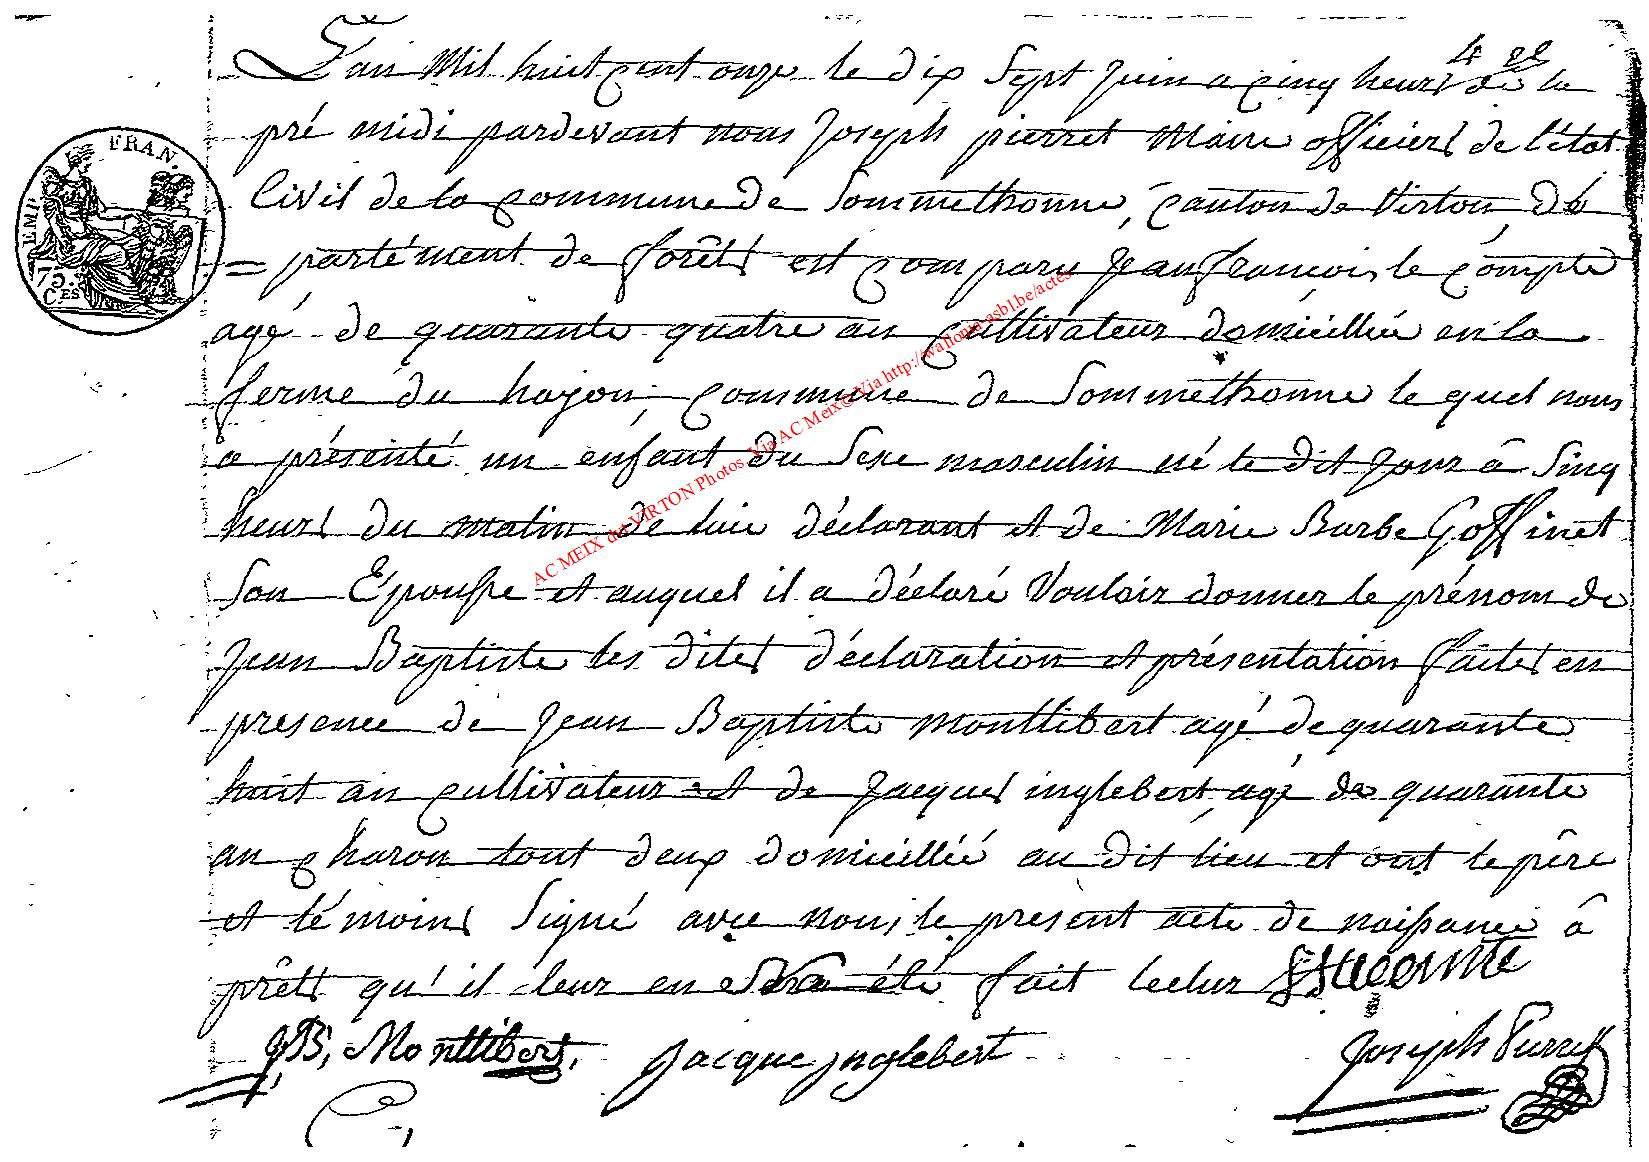 4 22
L'an Mil huit cent onze le dix Sept Juin a cinq heurs de la
pré midi pardevant nous Joseph pierret Maire officiers de l'état
EMP. FRAN.
75. CES
Civil de la commune de Sommethonne, canton de Virton, dé
= partément de forêts est comparu Jean francois le Compte
agé de quarante quatre an cultivateur domicillié en la
ferme du hayon, commune de Sommethonne le quel nous
a présenté un enfant du Sexe masculin né le dit Jour â Sinq
heurs du matin de luie déclarant et de Marie Barbe Goffinet
Son Épousse et auquel il a déclaré Vouloir donner le prénom de
Jean Baptiste les dites déclaration et présentation faites en
presence de Jean Baptiste montlibert agé de quarante
huit an cultivateur et de Jacques inglebert agé de quarante
an charon tout deux domicillié au dit lieu et ont le pêre
et témoins Signé avec nous le present acte de naissance â
prêts qu'il leur en été fait lectur
JB, Montlibert, Jacque Jnglebert Joseph Pierret
AC MEIX dvt VIRTON Photos Via AC Meix© Via http://wallonia-asbl.be/actes